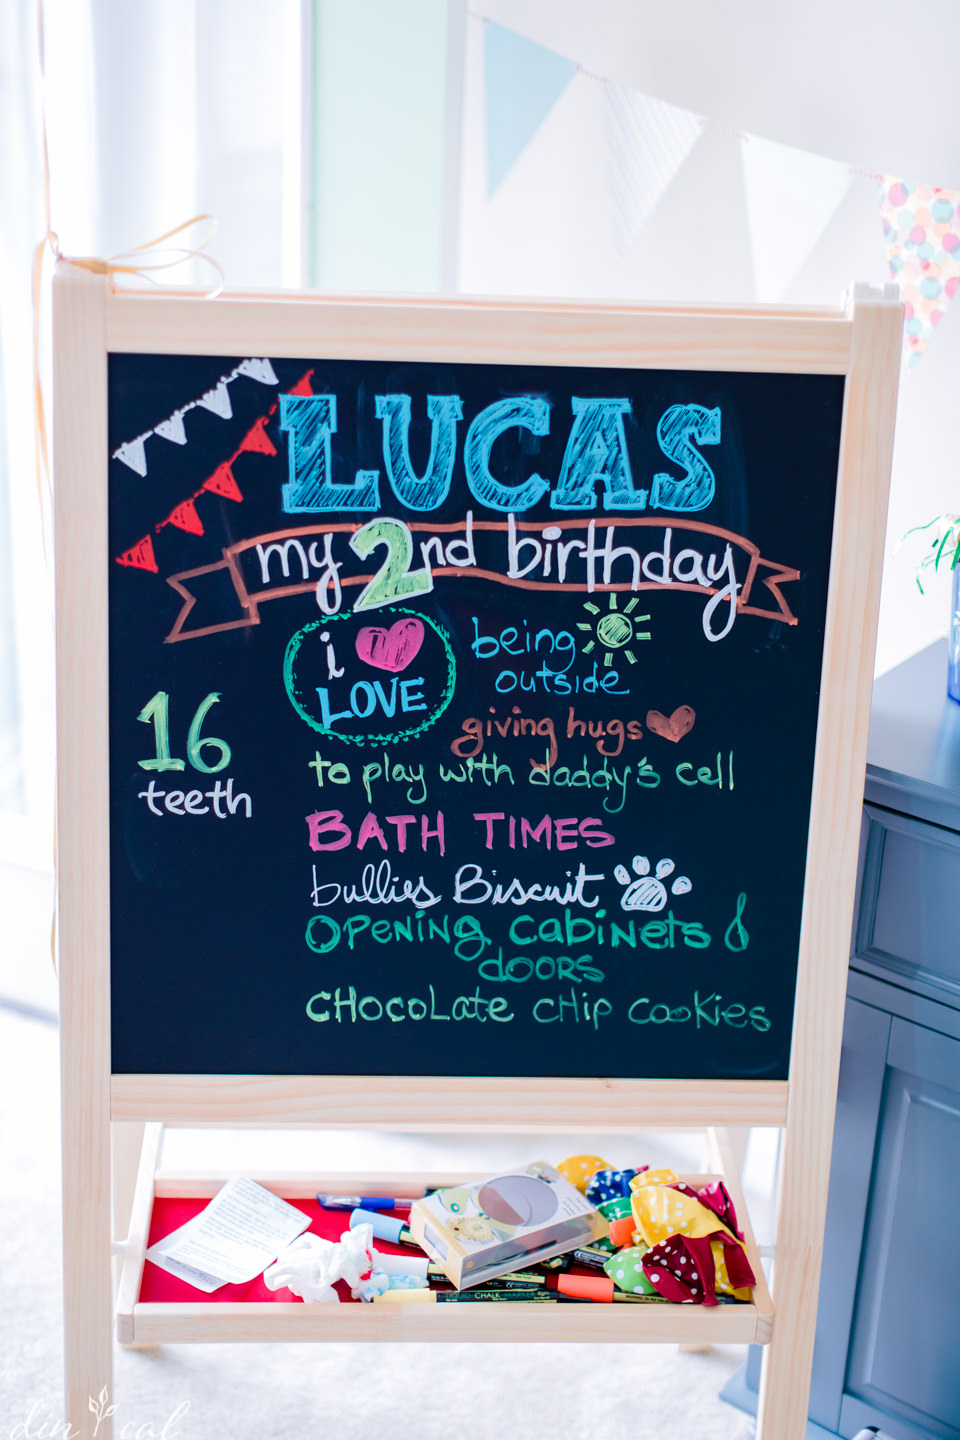 LUCAS
my 2nd birthday
i
LOVE
being
outside
giving hugs
to play with daddy's cell
16
teeth
BATH TIMES
bullies Biscuit
OPENING cabiNets &
dOORS
CHocoLate cHip cookies
CHALK MARKER
din cal